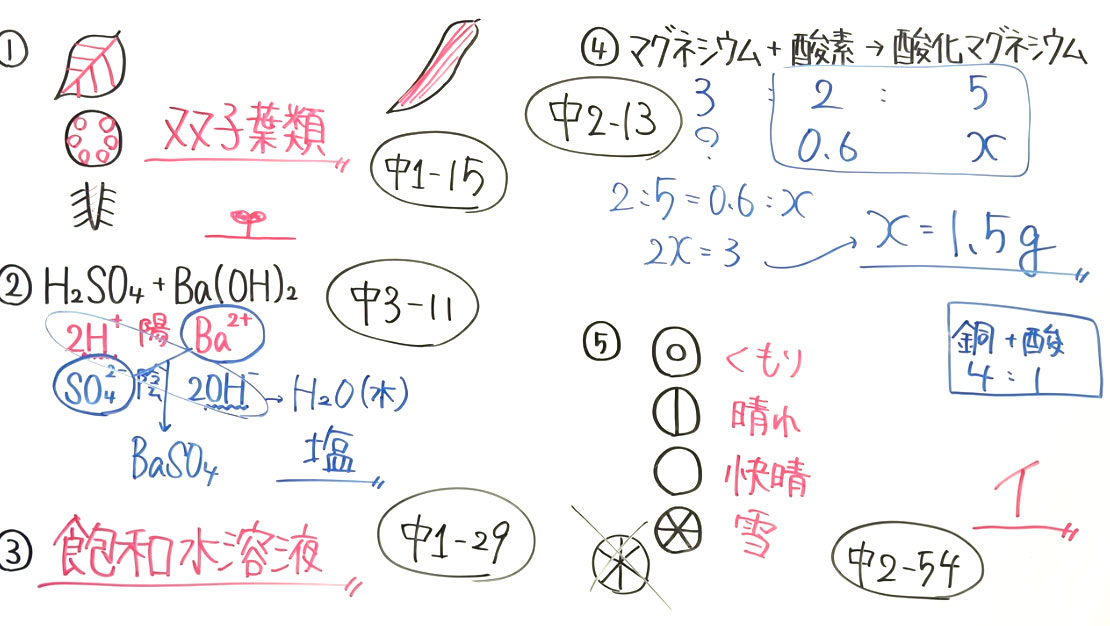 ①
双子葉類
中1-15
② H₂SO₄ + Ba(OH)₂
中3-11
2H⁺ 陽 Ba²⁺
SO₄²⁻ 陰 2OH⁻ → H₂O(水)
BaSO₄ 塩
③ 飽和水溶液
中1-29
④ マグネシウム + 酸素 → 酸化マグネシウム
中2-13
3 : 2 : 5
? 0.6 x
2:5=0.6:x
2x=3
x=1.5g
銅+酸
4:1
⑤ くもり
晴れ
快晴
雪
イ
中2-54